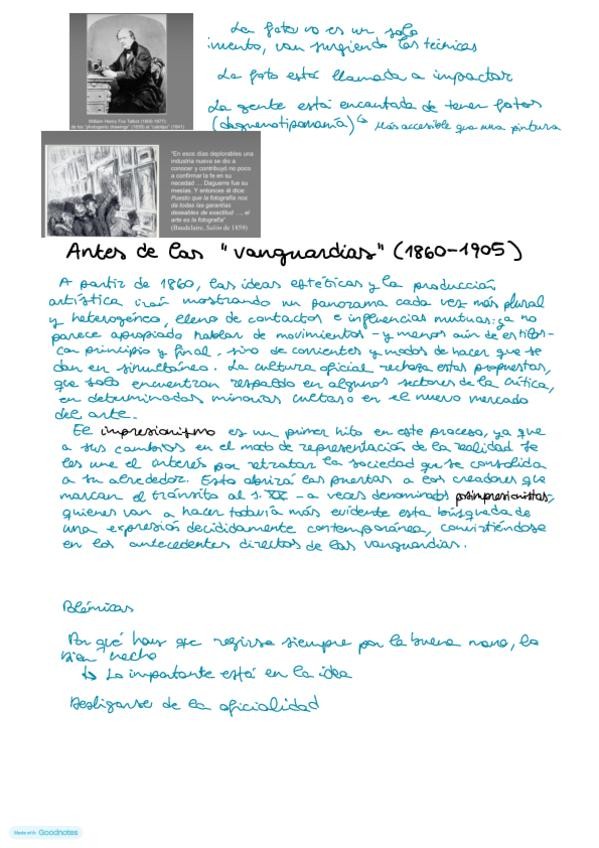 La foto no es un solo
invento, van surgiendo las técnicas
La foto está llamada a impactar
La gente está encantada de tener fotos
(daguerrotipomanía) ↳ Más accesible que una pintura
William Henry Fox Talbot (1800-1877)
de los "photogenic drawings" (1839) al "calotipo" (1841)
"En esos días deplorables una
industria nueva se dio a
conocer y contribuyó no poco
a confirmar la fe en su
necedad ... Daguerre fue su
mesías. Y entonces él dice
Puesto que la fotografía nos
da todas las garantías
deseables de exactitud ..., el
arte es la fotografía"
(Baudelaire, Salón de 1859)
Antes de las "vanguardias" (1860-1905)
A partir de 1860, las ideas estéticas y la producción
artística irán mostrando un panorama cada vez más plural
y heterogéneo, lleno de contactos e influencias mutuas: ya no
parece apropiado hablar de movimientos - y menos aún de estilos -
con principio y final, sino de corrientes y modos de hacer que se
dan en simultáneo. La cultura oficial rechaza estas propuestas,
que solo encuentran respaldo en algunos sectores de la crítica,
en determinadas minorías cultas o en el nuevo mercado
del arte.
El impresionismo es un primer hito en este proceso, ya que
a sus cambios en el modo de representación de la realidad se
les une el interés por retratar la sociedad que se consolida
a su alrededor. Esto abrirá las puertas a los creadores que
marcan el tránsito al s. XX - a veces denominados postimpresionistas -
quienes van a hacer todavía más evidente esta búsqueda de
una expresión decididamente contemporánea, convirtiéndose
en los antecedentes directos de las vanguardias.
Polémicas
Por qué hay que regirse siempre por la buena mano, lo
bien hecho
↳ Lo importante está en la idea
Desligarse de la oficialidad
Made with Goodnotes